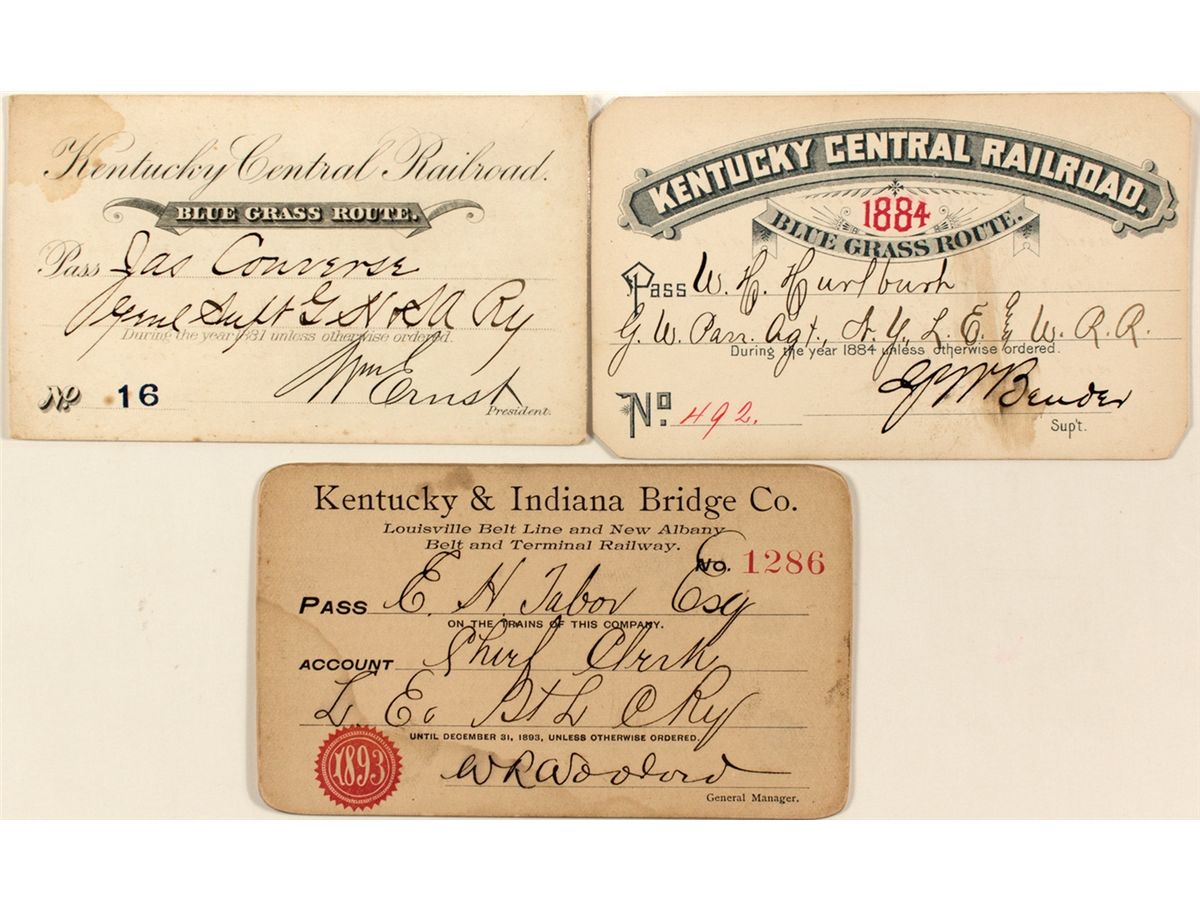 Kentucky Central Railroad.
BLUE GRASS ROUTE.
Pass Jas Converse
Genl Supt G H & S A Ry
During the year 1881 unless otherwise ordered.
Wm Ernst
No 16
President.
KENTUCKY CENTRAL RAILROAD.
1884
BLUE GRASS ROUTE.
Pass W. H. Hurlburt
G. W. Pass. Agt., N. Y., L. E. & W. R. R.
During the year 1884 unless otherwise ordered.
No. 492.
Bender
Sup't.
Kentucky & Indiana Bridge Co.
Louisville Belt Line and New Albany
Belt and Terminal Railway.
No. 1286
PASS E. H. Tabor Esq
ON THE TRAINS OF THIS COMPANY.
ACCOUNT Chief Clerk
L. E. & St L C Ry
UNTIL DECEMBER 31, 1893, UNLESS OTHERWISE ORDERED.
1893
W R Woodord
General Manager.